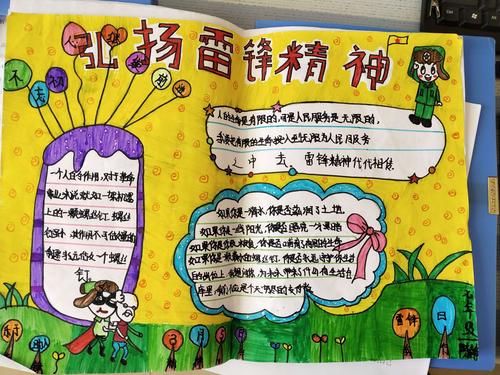 弘扬雷锋精神
不 忘 初
人的生命是有限的,可是人民服务是无限的,
我要把有限的生命投入到无限为人民服务
之中去 雷锋精神代代相传
一个人的作用,对于革命
事业来说就如一架机器
上的一颗螺丝钉 螺丝
钉虽小 其作用不可估量的
我愿永远做一个螺丝
钉
如果你是一滴水,你是否滋润了土地,
如果你是一线阳光,你是否照亮一分黑暗
如果你是一颗粮食,你是否哺育了有用的生命
如果你是最小的螺丝钉,你是否永远守护你生活
的岗位上
乐于助人 3月5日 雷锋日